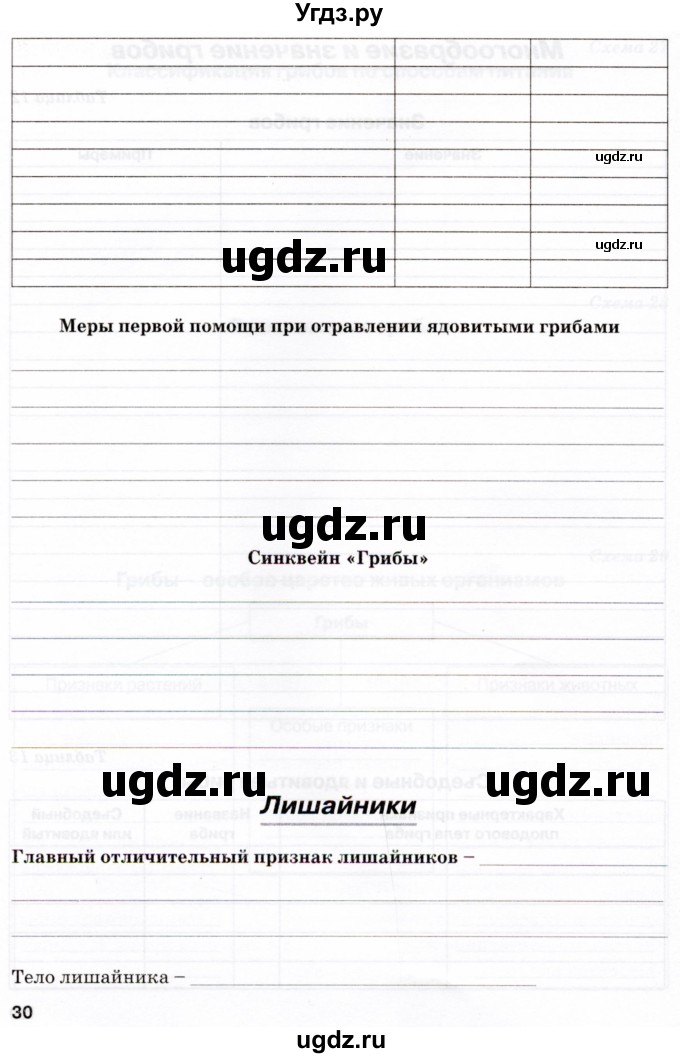 Угдз.ру
ugdz.ru
ugdz.ru
ugdz.ru
Меры первой помощи при отравлении ядовитыми грибами
ugdz.ru
Синквейн «Грибы»
ugdz.ru
ugdz.ru
Лишайники
Главный отличительный признак лишайников –
Тело лишайника –
30
ugdz.ru